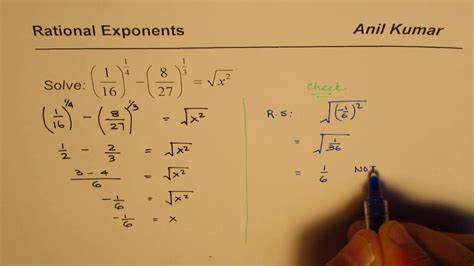 Rational Exponents Anil Kumar
Solve: (1/16)^(1/4) − (8/27)^(1/3) = √x²
(1/16)^(1/4) − (8/27)^(1/3) = √x²
1/2 − 2/3 = √x²
(3 − 4)/6 = √x²
−1/6 = √x²
−1/6 = x
Check.
R.S: √(−1/6)²
= √(1/36)
= 1/6 NOT